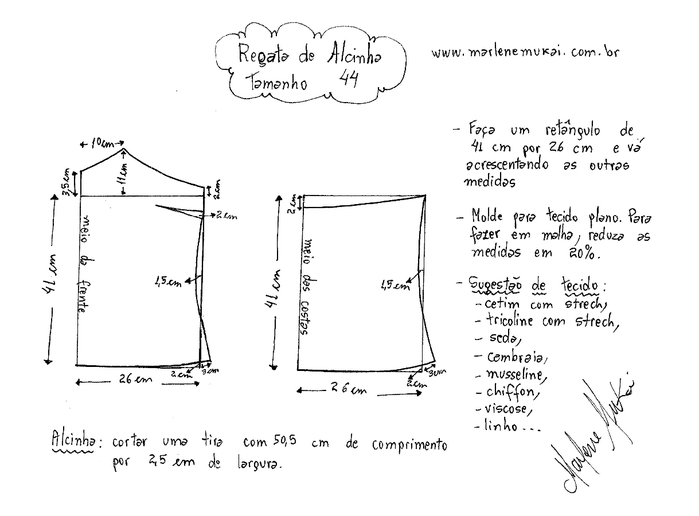 Regata de Alcinha
Tamanho 44
www.marlenemukai.com.br
10cm
3,5cm
11cm
2cm
2cm
meio da frente
41 cm
1,5cm
2cm
3cm
26 cm
2cm
meio das costas
41 cm
1,5cm
2cm
3cm
26 cm
- Faça um retângulo de
41 cm por 26 cm e vá
acrescentando as outras
medidas
- Molde para tecido plano. Para
fazer em malha, reduza as
medidas em 20%.
- Sugestão de tecido:
- cetim com strech,
- tricoline com strech,
- seda,
- cambraia,
- musseline,
- chiffon,
- viscose,
- linho...
Marlene Mukai
Alcinha: cortar uma tira com 50,5 cm de comprimento
por 2,5 cm de largura.